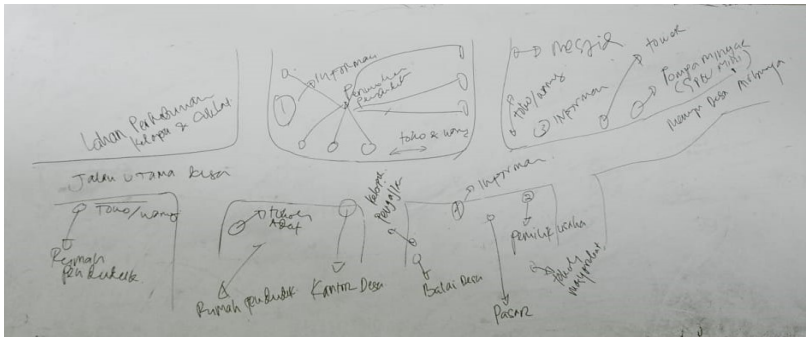 Lahan Perkebunan
Kelapa & Coklat
Informan
1
Perumahan
Penduduk
toko & warung
Mesjid
toko/warung
3
Informan
tokoh
Pompa Minyak
(SPBU Mini)
Menuju Desa
Jalan Utama Desa
Toko/warung
Rumah
penduduk
tokoh
Adat
Rumah penduduk
Kantor Desa
Balai Desa
Informan
Pasar
Pemilik usaha
tokoh
masyarakat